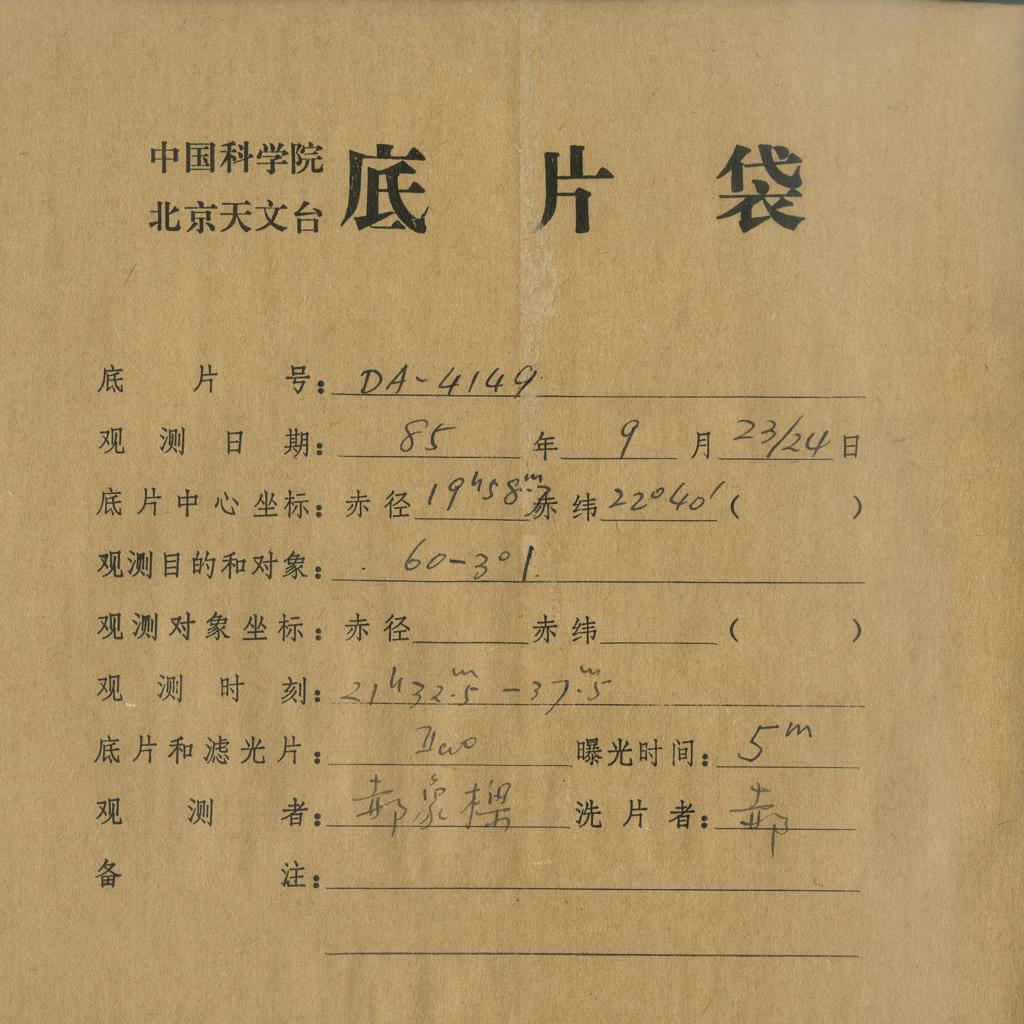 中国科学院
北京天文台
底片袋
底片号：DA-4149
观测日期：85年9月23/24日
底片中心坐标：赤径19h58m.7赤纬22°40′（ ）
观测目的和对象：60-301
观测对象坐标：赤径 赤纬 （ ）
观测时刻：21h32m.5-37m.5
底片和滤光片： 曝光时间：5m
观测者：郝象樑 洗片者：郝
备注：